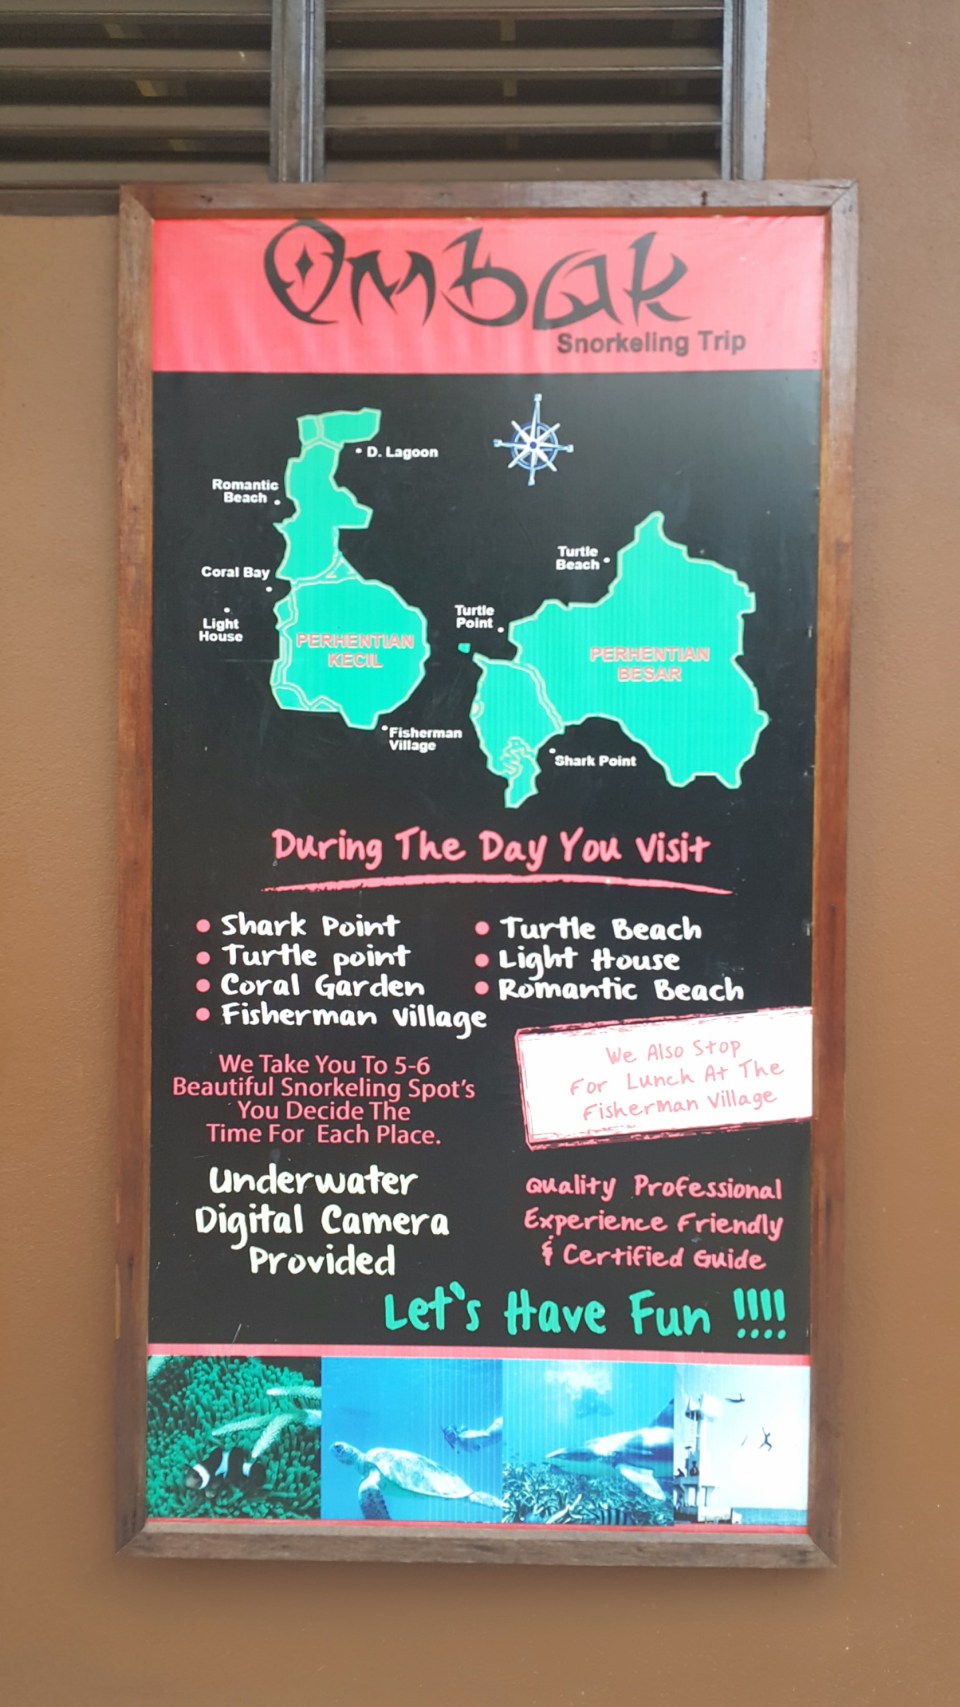 Ombak
Snorkeling Trip
D. Lagoon
Romantic
Beach
Turtle
Beach
Coral Bay
Turtle
Point
Light
House
PERHENTIAN
KECIL
PERHENTIAN
BESAR
Fisherman
Village
Shark Point
During The Day You Visit
Shark Point
Turtle point
Coral Garden
Fisherman Village
Turtle Beach
Light House
Romantic Beach
We Also Stop
For Lunch At The
Fisherman Village
We Take You To 5-6
Beautiful Snorkeling Spot's
You Decide The
Time For Each Place.
Underwater
Digital Camera
Provided
Quality Professional
Experience Friendly
& Certified Guide
Let's Have Fun !!!!